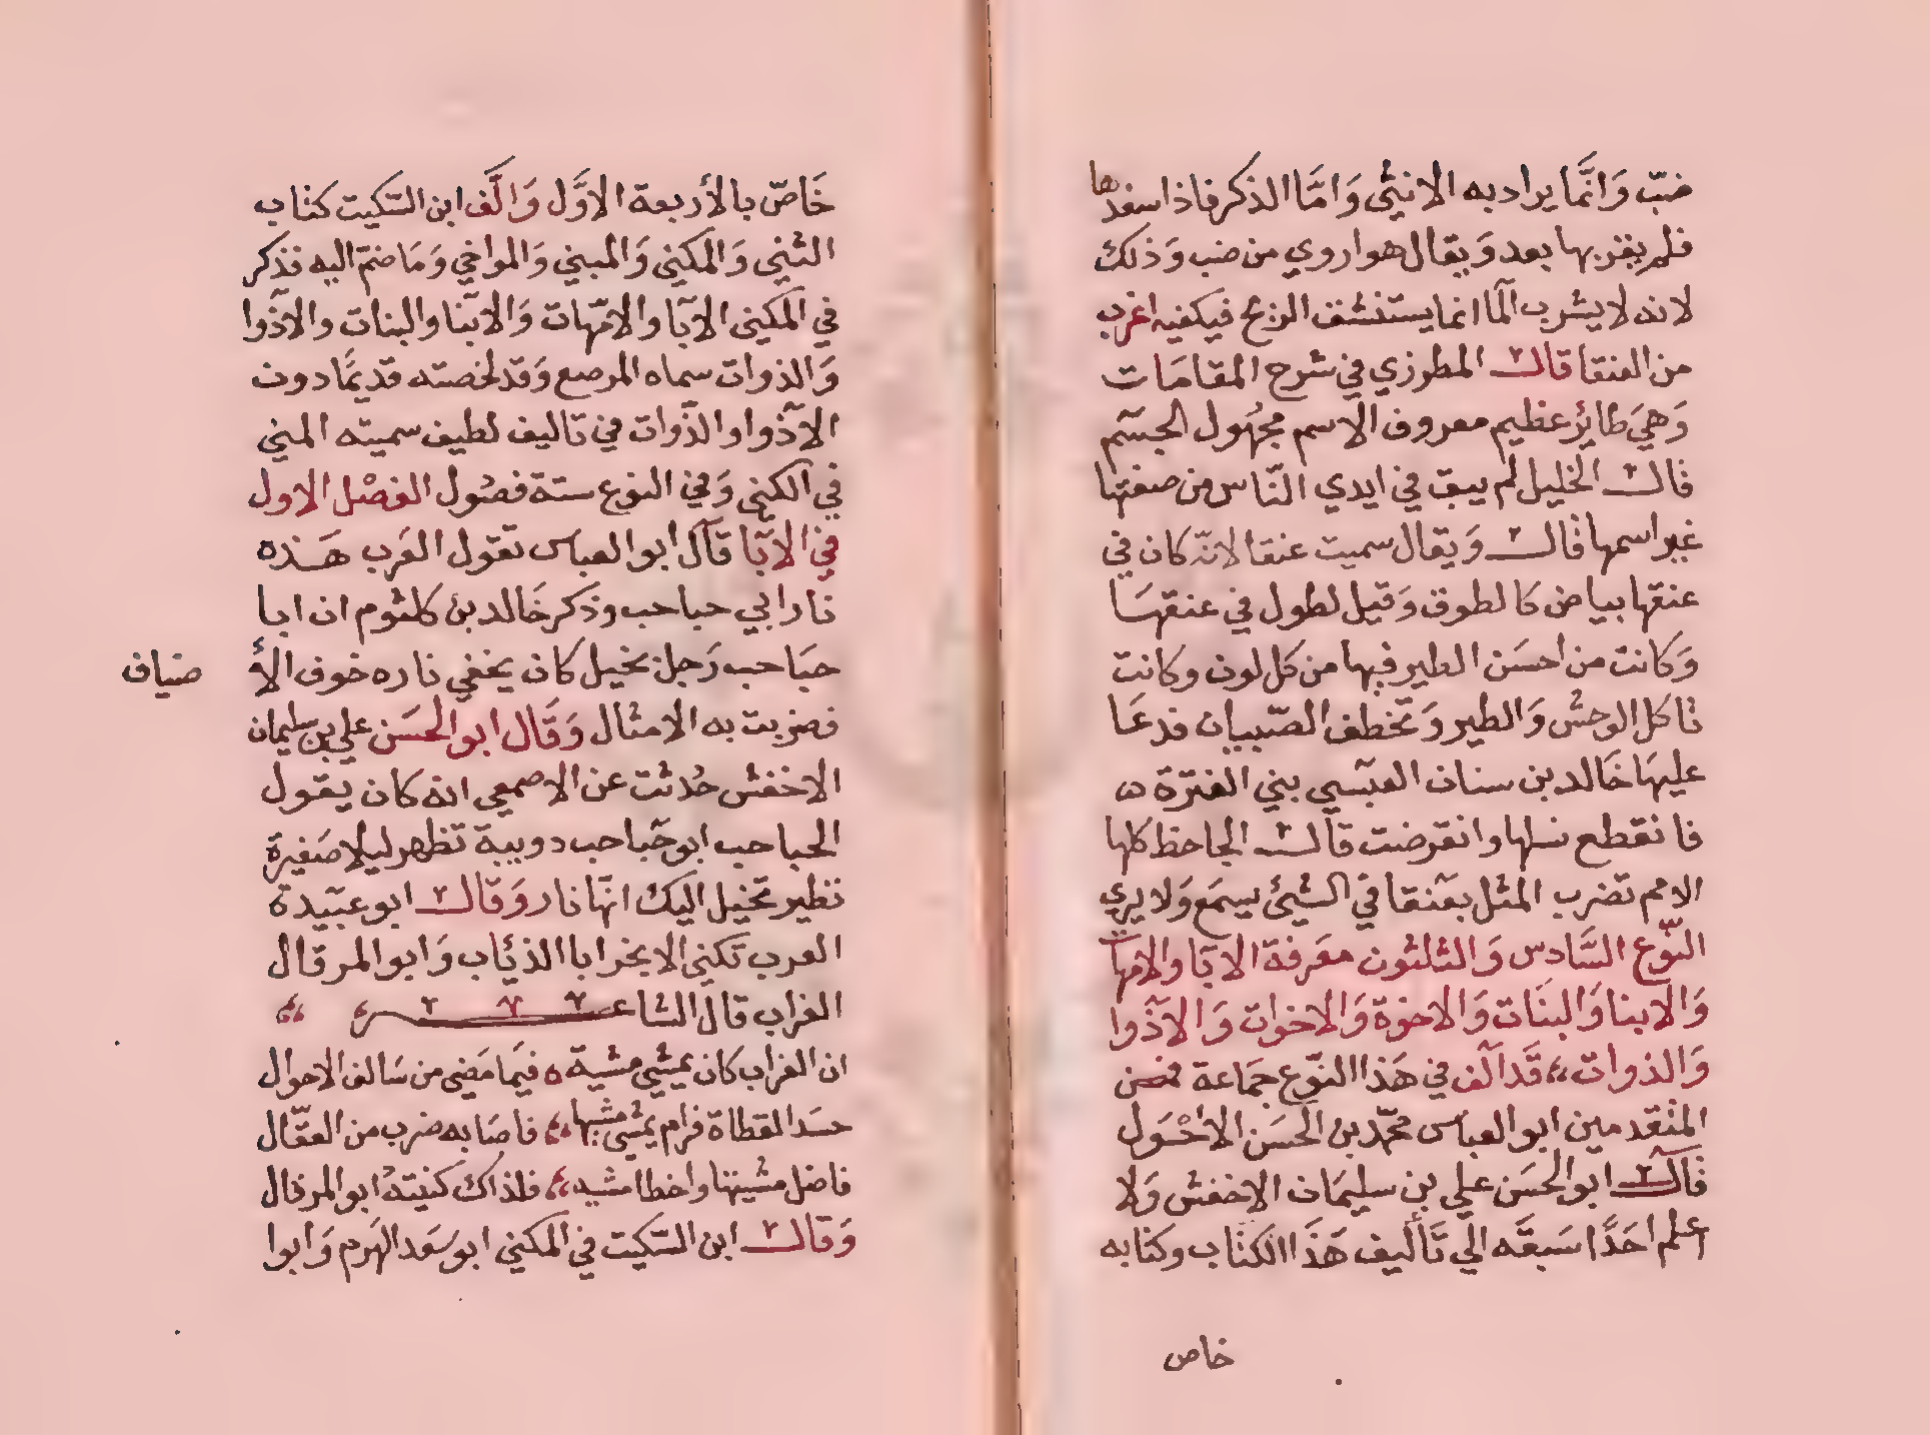 ضبّ وَانّمَا يراد به الانثى وَامّا الذكر فاذا سفدها
فلم يقربها بعد وَيقال هو اروي من ضب وَذلك
لانه لا يشرب المَا انما يستنشق الريح فيكفيه اغرب
من العنقا قال المطرزي في شرح المقامَات
وَهيَ طائر عظيم معروف الاسم مجهُول الجسم
قال الخليل لم يبق في ايدي النّاس من صفتها
غير اسمها قال وَيقال سميت عنقا لانّه كان في
عنقها بياض كالطوق وَقيل لطول في عنقهَا
وَكانت من احسَن الطير فيها من كل لون وكانت
تاكل الوحش وَالطير وَتخطف الصّبيان فدعَا
عليهَا خَالد بن سنان العبسي بني الفترة ه
فانقطع نسلها وانقرضت قال الجاحظ كلها
الامم تضرب المثل بعنقا في الشيئ يسمَع وَلا يري
النّوع السَّادس وَالثلثون معَرفة الابَا والامها
وَالابنا وَالبنَات وَالاخوة وَالاخوات وَالاذوا
وَالذوات قَد الّف في هَذا النّوع جمَاعة فمن
المتقدمين ابو العباس محمّد بن الحسَن الاحْوَل
قَال ابو الحسَن علي بن سليمَان الاخفش وَلا
اعلم احَدًا سَبقَه الي تَأليف هَذا الكتاب وكتابه
خاص
خَاصّ بالأربعة الاوَّل وَالَّف ابن السّكيت كتاب
المثني وَالمكني وَالمبني وَالمواخي وَمَا ضمّ اليه فذكر
في المكني الابَا والامّهات وَالابنَا والبنات والاذوا
وَالذوات سماه المرصع وَقد لخصته قديمًا دون
الاذوا والذّوات في تاليف لطيف سميته المني
في الكني وَفي النوع ستة فصُول الفصْل الاول
في الابَا قال ابو العباس تقول العَرب هَذه
نار ابي حباحب وذكر خَالد بن كلثوم ان ابا
حبَاحب رَجل بخيل كان يخفي ناره خوف الأ
ضياف
فضربت به الامثال وَقَال ابو الحسَن علي بن سليمان
الاخفش حُدثت عن الاصمعي انه كان يقول
الحباحب ابو حَباحب دويبة تظهر ليلا صَغيرة
تطير تخيل اليك انّها نار وَقال ابو عبَيدة
العرب تكني الابخر ابا الذئاب وَابو المرقال
الغراب قال الشاعر
ان الغراب كان يمشي مشية ه فيمَا مَضى من سَالف الاحوال
حسَد القطاة فرام يمشي مشيها فاصَابه ضرب من العقّال
فاضل مشيتها واخطا مشيه فلذاك كنيتهُ ابو المرقال
وَقال ابن السّكيت في المكني ابو سَعد الهَرم وَابوا